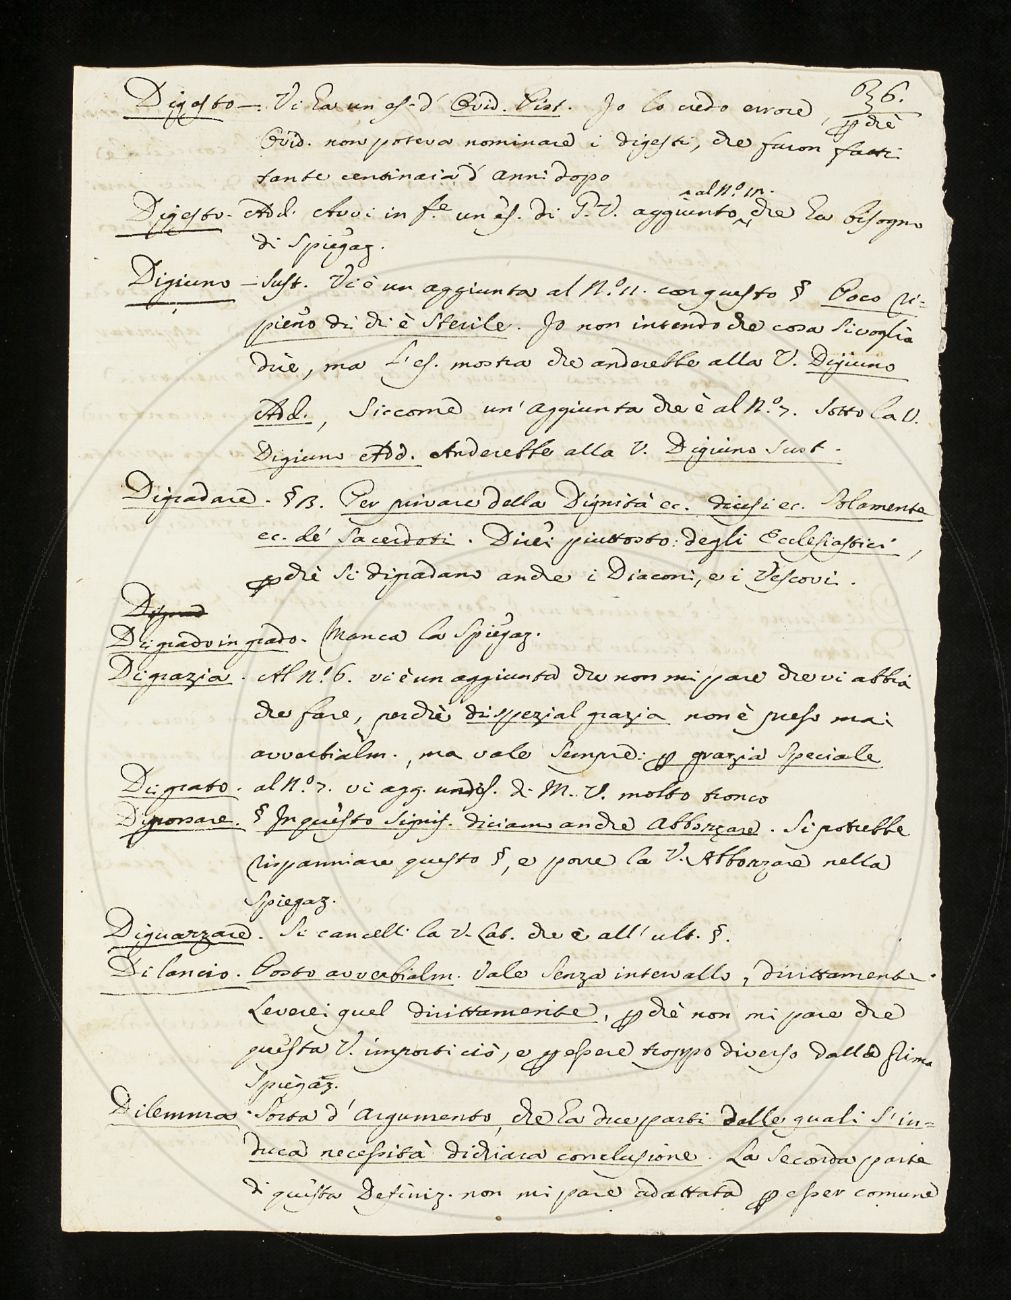 636.
Digesto — Vi ha un es. d' Ovid. Pist. Io lo credo errore, pchè
Ovid. non poteva nominare i digesti, che furon fatti
tante centinaia d' anni dopo
Digesto. Add. Avvi in f.e un es. di T. V. aggiunto al N.o IV. che ha bisogno
di Spiegaz.
Digiuno — Sust. Vi è un aggiunta al N.o 11. con questo § Poco ri=
pieno di ch è Sterile. Io non intendo che cosa si voglia
dire, ma l' es. mostra che anderebbe alla V. Digiuno
Add., siccome un' aggiunta che è al N.o 7. sotto la V.
Digiuno Add. Anderebbe alla V. Digiuno Sust.
Digradare. § 13. Per privare della Dignità ec. dicesi ec. Solamente
ec. de' Sacerdoti. Direi piuttosto: degli Ecclesiastici,
pchè si digradano anche i Diaconi, e i Vescovi.
Digrad
Di grado in grado. Manca la Spiegaz.
Di grazia. Al N.o 6. vi è un aggiunta che non mi pare che vi abbia
che fare, perchè di spezial grazia non è preso mai
avverbialm., ma vale sempre: p grazia speciale
Di grato. al N.o 7. vi agg. un es. di M. V. molto tronco
Digrossare. § In questo signif. diciamo anche Abbozzare. Si potrebbe
risparmiare questo §, e porre la V. Abbozzare nella
Spiegaz.
Diguazzare. Si cancelli la V. Lat. che è all' ult. §.
Di lancio. Posto avverbialm. Vale Senza intervallo, dirittamente.
Leverei quel dirittamente, pchè non mi pare che
questa V. importi ciò, e p essere troppo diverso dalla prima
Spiegaz.
Dilemma. Sorta d' Argumento, che ha due parti dalle quali s' in=
duca necessità di chiara conclusione. La seconda parte
di questa Definiz. non mi pare adattata p esser comune